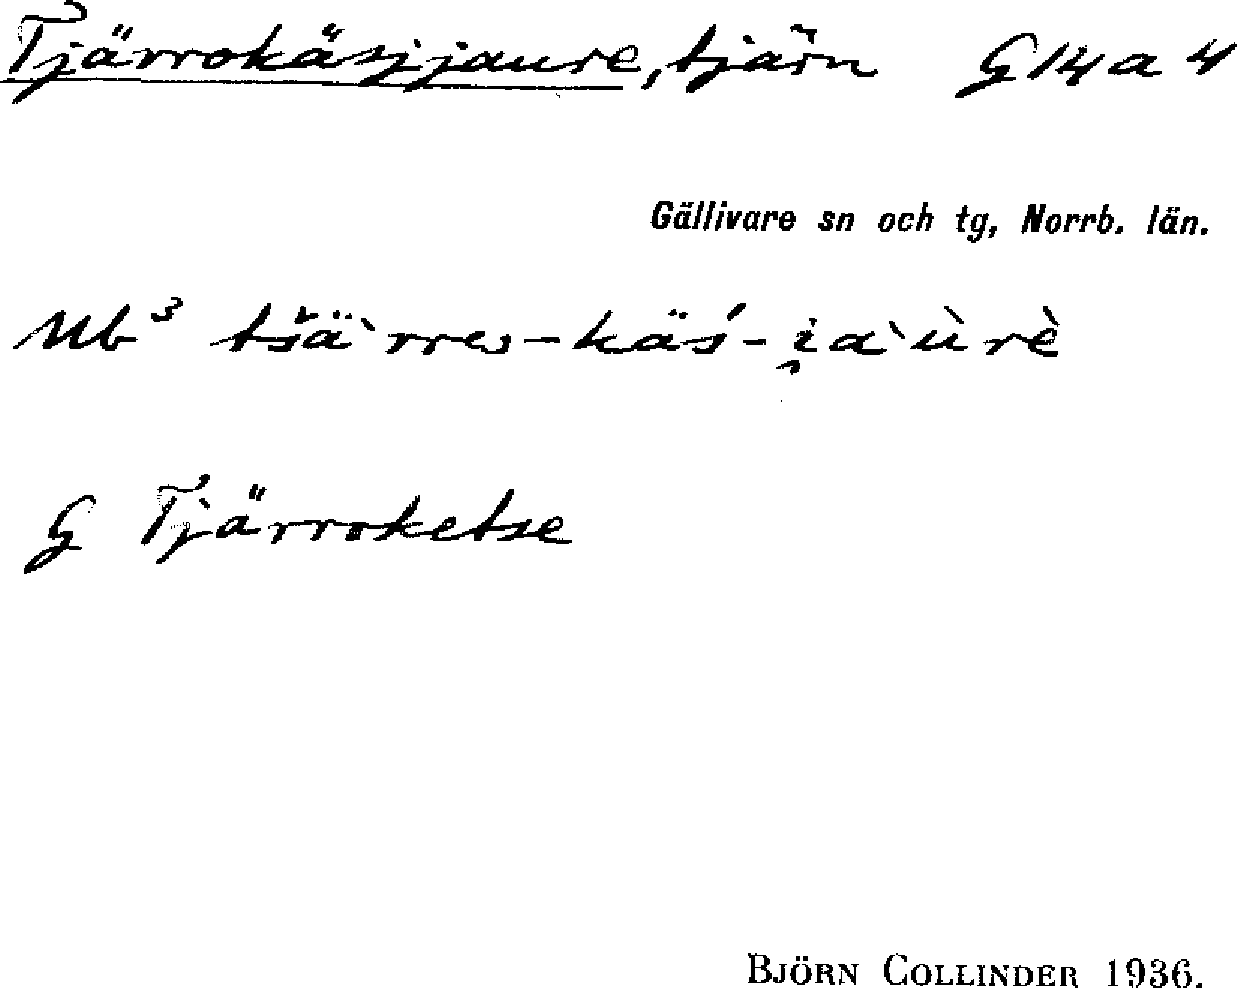 Tjärrokäsjjaure, tjärn G 14 a 4
Gällivare sn och tg, Norrb. län.
Nb³ tšä`rreω-käś-i̯a`ùrè
G Tjärroketse
BJÖRN COLLINDER 1936.